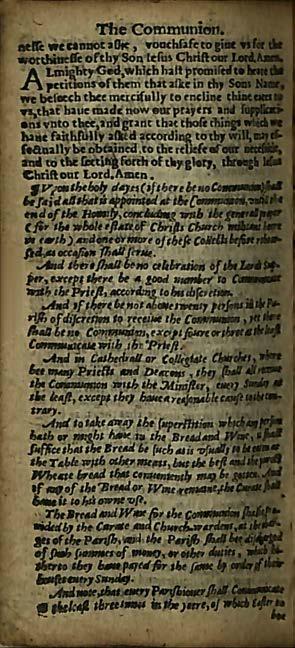 The Communion.
nesse we cannot aske, vouchsafe to giue vs for the
worthinesse of thy Son Iesus Christ our Lord, Amen.
ALmighty God, which hast promised to heare the
petitions of them that aske in thy Sons Name,
we beseech thee mercifully to encline thine eares to
vs, that haue made now our prayers and supplicati-
ons vnto thee, and grant that those things which we
haue faithfully asked according to thy will, may ef-
fectually be obtained to the reliefe of our necessitie,
and to the setting forth of thy glory, through Iesus
Christ our Lord, Amen.
¶ Vpon the holy dayes (if there be no Communion) shall
be said all that is appointed at the Communion, vntill the
end of the Homily, concluding with the generall prayer
(for the whole estate of Christs Church militant heere
in earth) and one or more of these Collects before rehear-
sed, as occasion shall serue.
And there shall be no celebration of the Lords Sup-
per, except there be a good number to Communicate
with the Priest, according to his discretion.
And if there be not aboue twenty persons in the Pa-
rish of discretion to receiue the Communion, yet there
shall be no Communion, except foure or three at the least
Communicate with the Priest.
And in Cathedrall or Collegiate Churches, where
bee many Priests and Deacons, they shall all receiue
the Communion with the Minister, euery Sunday at
the least, except they haue a reasonable cause to the con-
trary.
And to take away the superstition which any person
hath or might haue in the Bread and Wine, it shall
suffice that the Bread be such as is vsually to be eaten at
the Table with other meats, but the best and the purest
Wheate bread that conueniently may be gotten. And
if any of the Bread or Wine remaine, the Curate shall
haue it to his owne vse.
The Bread and Wine for the Communion shall be pro-
uided by the Curate and Church-wardens, at the char-
ges of the Parish, and the Parish shall bee discharged
of such summes of money, or other duties, which hi-
therto they haue payed for the same by order of their
houses euery Sunday.
And note, that euery Parishioner shall Communicate
at the least three times in the yeere, of which Easter to
bee